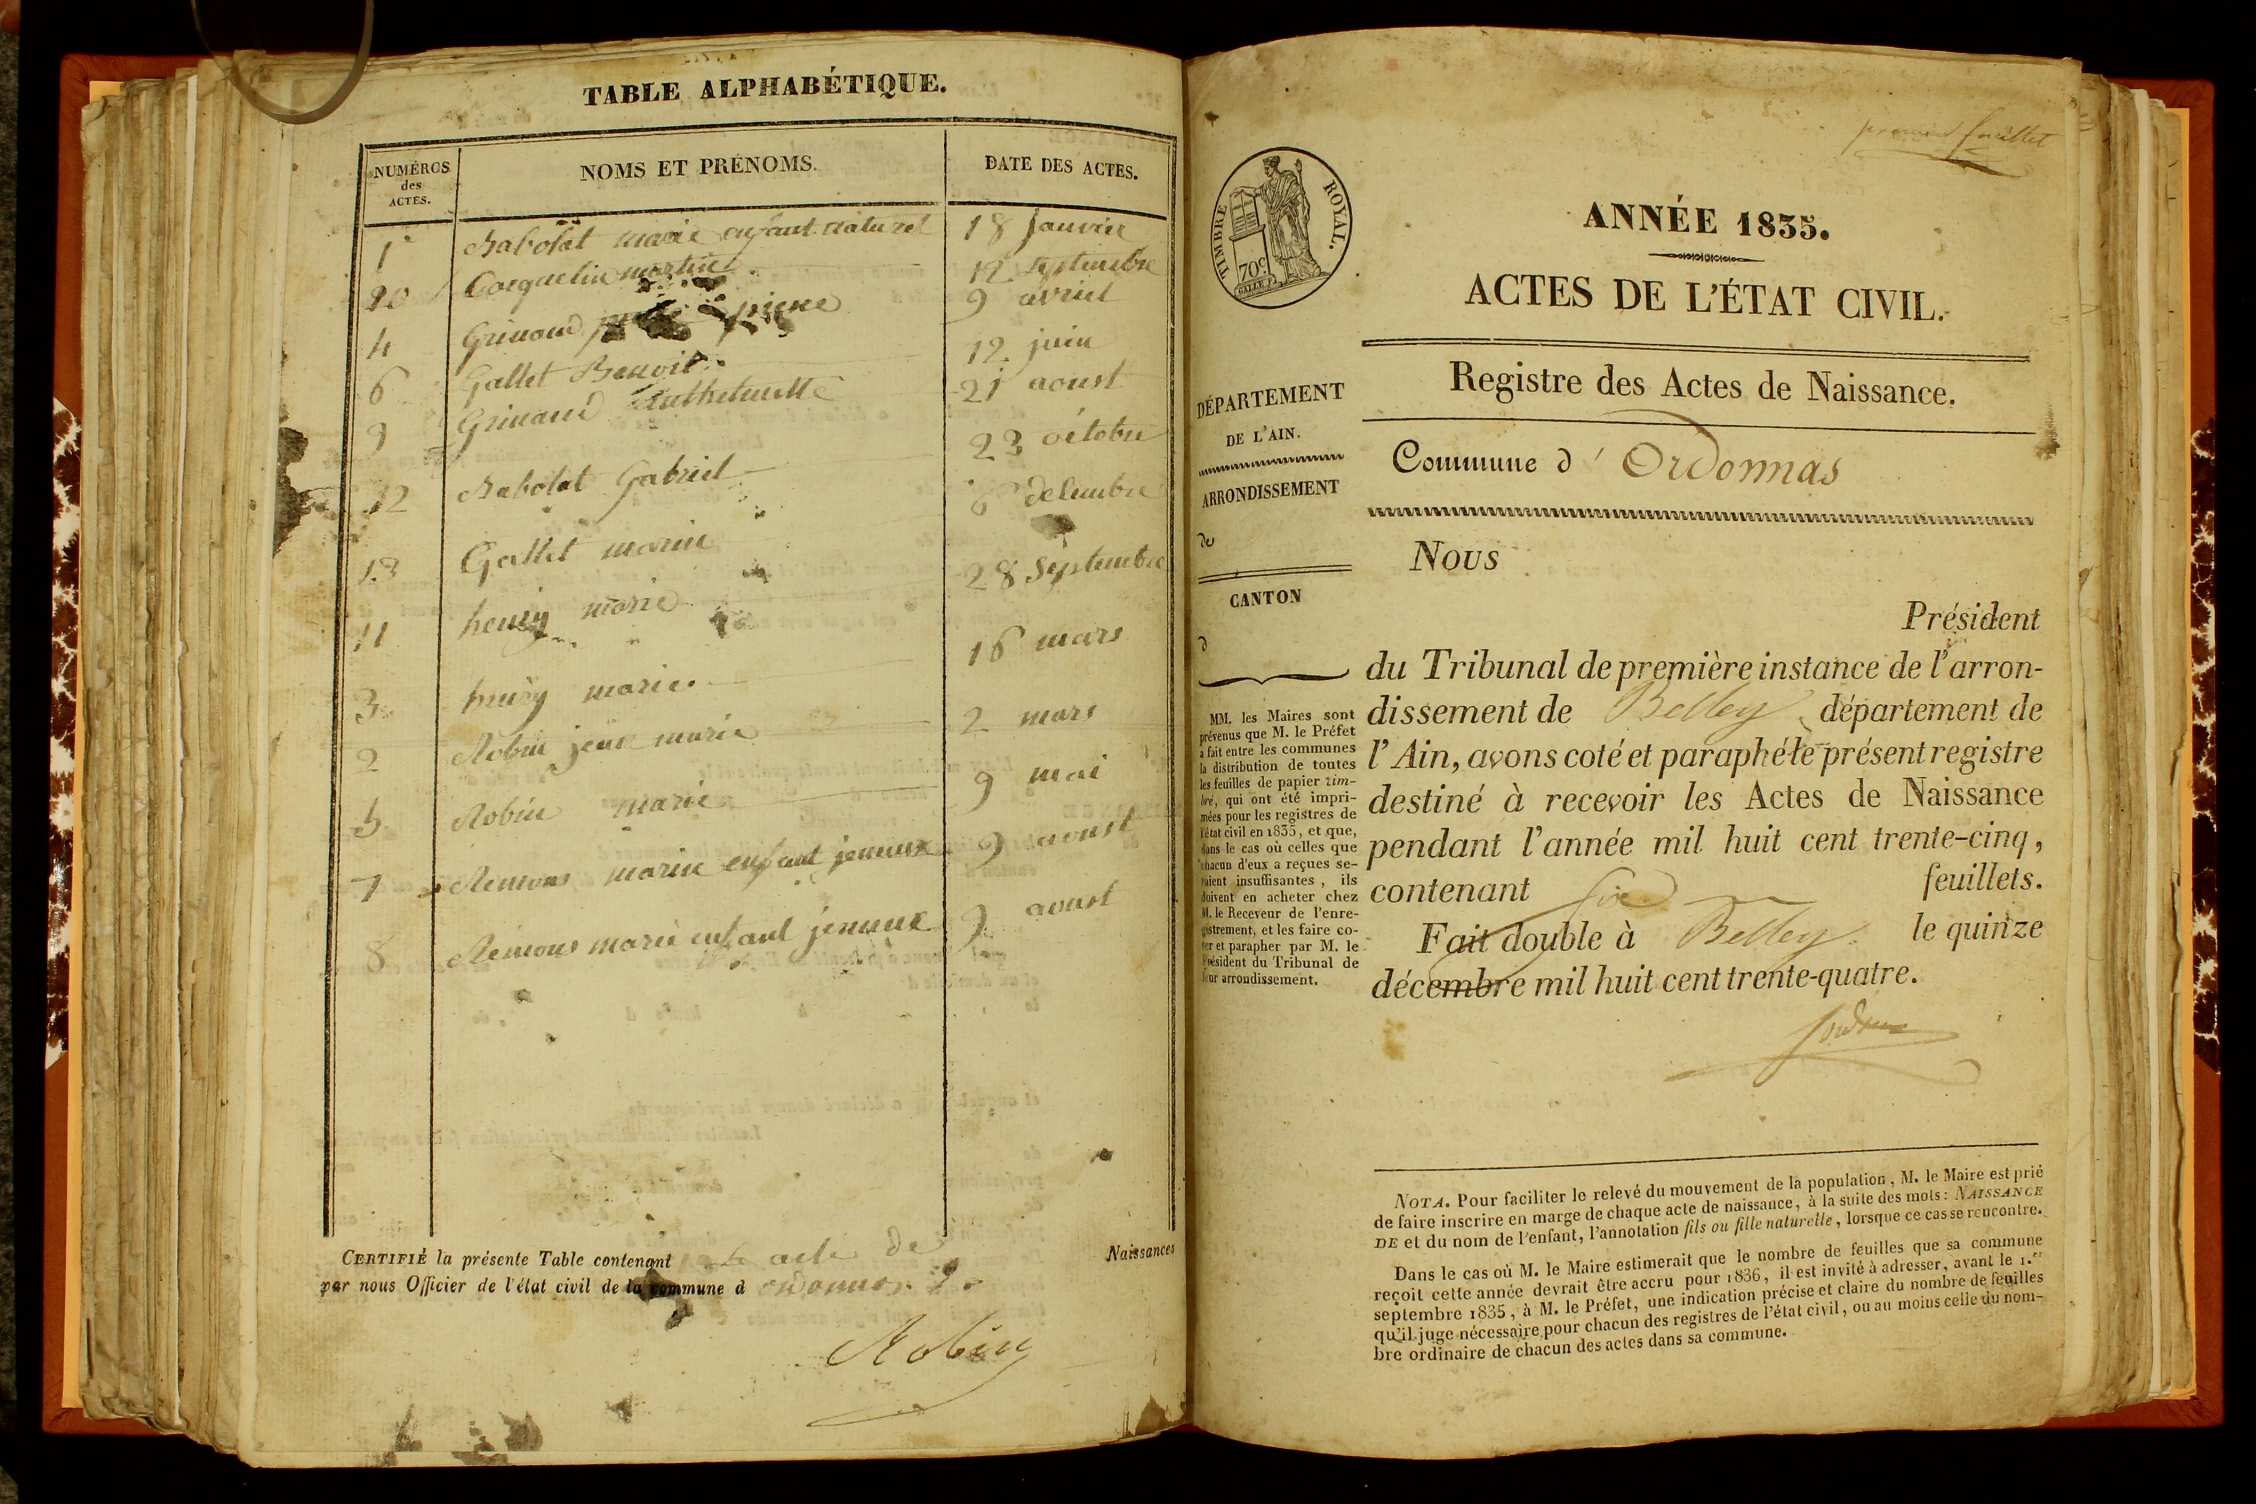 TABLE ALPHABÉTIQUE.
NUMÉROS des ACTES. NOMS ET PRÉNOMS. DATE DES ACTES.
1 Babolat marie enfant naturel 18 Janvier
10 Cocquelin martin 12 septembre
4 Grinand pierre 9 avriel
6 Gallet Benoit 12 juin
9 Grinand anthelmette 21 aoust
12 Babolat Gabriel 23 octobre
13 Gallet marie 8 decembre
11 henry marie 28 Septembre
3 henry marie 16 mars
2 Robin jean marie 2 mars
5 Robin marie 9 mai
7 Remons marie enfant jemeux 9 aoust
8 Remons marie enfant jemeux 9 aoust
CERTIFIÉ la présente Table contenant acte de Naissances
par nous Officier de l'état civil de la commune d ordonnas
Robin
premier feuillet
TIMBRE ROYAL.
70c
ANNÉE 1835.
ACTES DE L'ÉTAT CIVIL.
Registre des Actes de Naissance.
DÉPARTEMENT
DE L'AIN.
ARRONDISSEMENT
de
CANTON
d
MM. les Maires sont
prévenus que M. le Préfet
a fait entre les communes
la distribution de toutes
les feuilles de papier tim-
bré, qui ont été impri-
mées pour les registres de
l'état civil en 1835, et que,
dans le cas où celles que
chacun d'eux a reçues se-
raient insuffisantes, ils
doivent en acheter chez
M. le Receveur de l'enre-
gistrement, et les faire co-
ter et parapher par M. le
Président du Tribunal de
leur arrondissement.
Commune d' Ordonnas
Nous
Président
du Tribunal de première instance de l'arron-
dissement de Belley département de
l'Ain, avons coté et paraphé le présent registre
destiné à recevoir les Actes de Naissance
pendant l'année mil huit cent trente-cinq,
contenant six feuillets.
Fait double à Belley le quinze
décembre mil huit cent trente-quatre.
NOTA. Pour faciliter le relevé du mouvement de la population, M. le Maire est prié
de faire inscrire en marge de chaque acte de naissance, à la suite des mots: NAISSANCE
DE et du nom de l'enfant, l'annotation fils ou fille naturelle, lorsque ce cas se rencontre.
Dans le cas où M. le Maire estimerait que le nombre de feuilles que sa commune
reçoit cette année devrait être accru pour 1836, il est invité à adresser, avant le 1.er
septembre 1835, à M. le Préfet, une indication précise et claire du nombre de feuilles
qu'il juge nécessaire pour chacun des registres de l'état civil, ou au moins celle du nom-
bre ordinaire de chacun des actes dans sa commune.